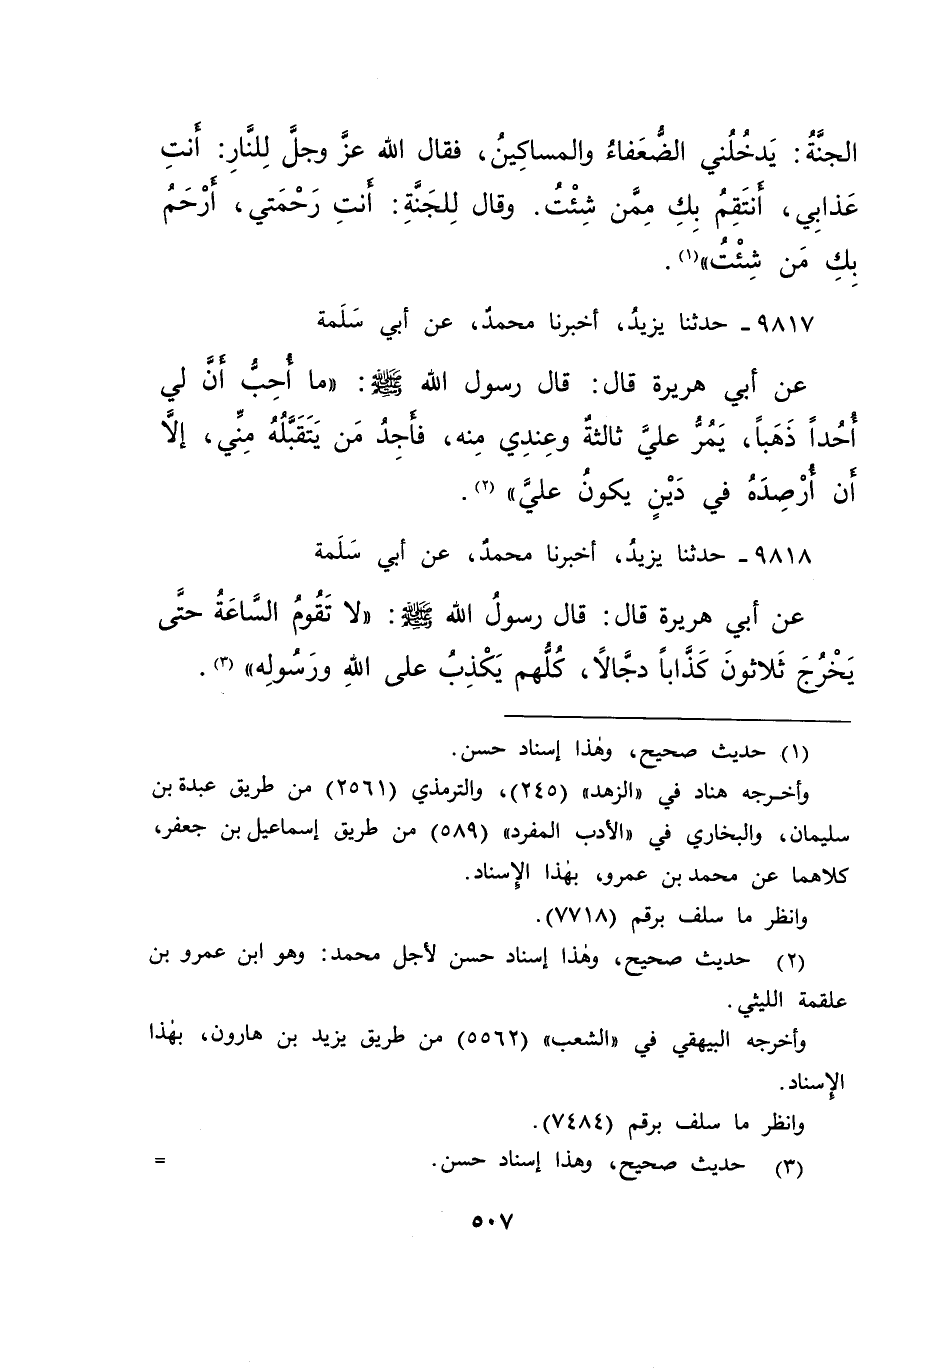 الجنَّةُ: يَدخُلُني الضُّعَفاءُ والمساكِينُ، فقال الله عزَّ وجلَّ لِلنَّارِ: أَنتِ
عَذابِي، أَنتَقِمُ بِكِ مِمَّن شِئْتُ. وقال لِلجَنَّةِ: أَنتِ رَحْمَتي، أَرْحَمُ
بِكِ مَن شِئْتُ»(١).
٩٨١٧ـ حدثنا يزيدُ، أخبرنا محمدٌ، عن أبي سَلَمة
عن أبي هريرة قال: قال رسول الله ﷺ: «ما أُحِبُّ أَنَّ لي
أُحُداً ذَهَباً، يَمُرُّ عليَّ ثالثةٌ وعِندِي مِنه، فأَجِدُ مَن يَتَقَبَّلُهُ مِنِّي، إلَّا
أَن أُرْصِدَهُ في دَيْنٍ يكونُ عليَّ»(٢).
٩٨١٨ـ حدثنا يزيدُ، أخبرنا محمدٌ، عن أبي سَلَمة
عن أبي هريرة قال: قال رسولُ الله ﷺ: «لا تَقُومُ السَّاعَةُ حتَّى
يَخْرُجَ ثَلاثونَ كَذَّاباً دجَّالاً، كُلُّهم يَكْذِبُ على اللهِ ورَسُولِه»(٣).
(١) حديث صحيح، وهٰذا إسناد حسن.
وأخرجه هناد في «الزهد» (٢٤٥)، والترمذي (٢٥٦١) من طريق عبدة بن
سليمان، والبخاري في «الأدب المفرد» (٥٨٩) من طريق إسماعيل بن جعفر،
كلاهما عن محمد بن عمرو، بهٰذا الإسناد.
وانظر ما سلف برقم (٧٧١٨).
(٢) حديث صحيح، وهٰذا إسناد حسن لأجل محمد: وهو ابن عمرو بن
علقمة الليثي.
وأخرجه البيهقي في «الشعب» (٥٥٦٢) من طريق يزيد بن هارون، بهٰذا
الإسناد.
وانظر ما سلف برقم (٧٤٨٤).
(٣) حديث صحيح، وهذا إسناد حسن. =
٥٠٧